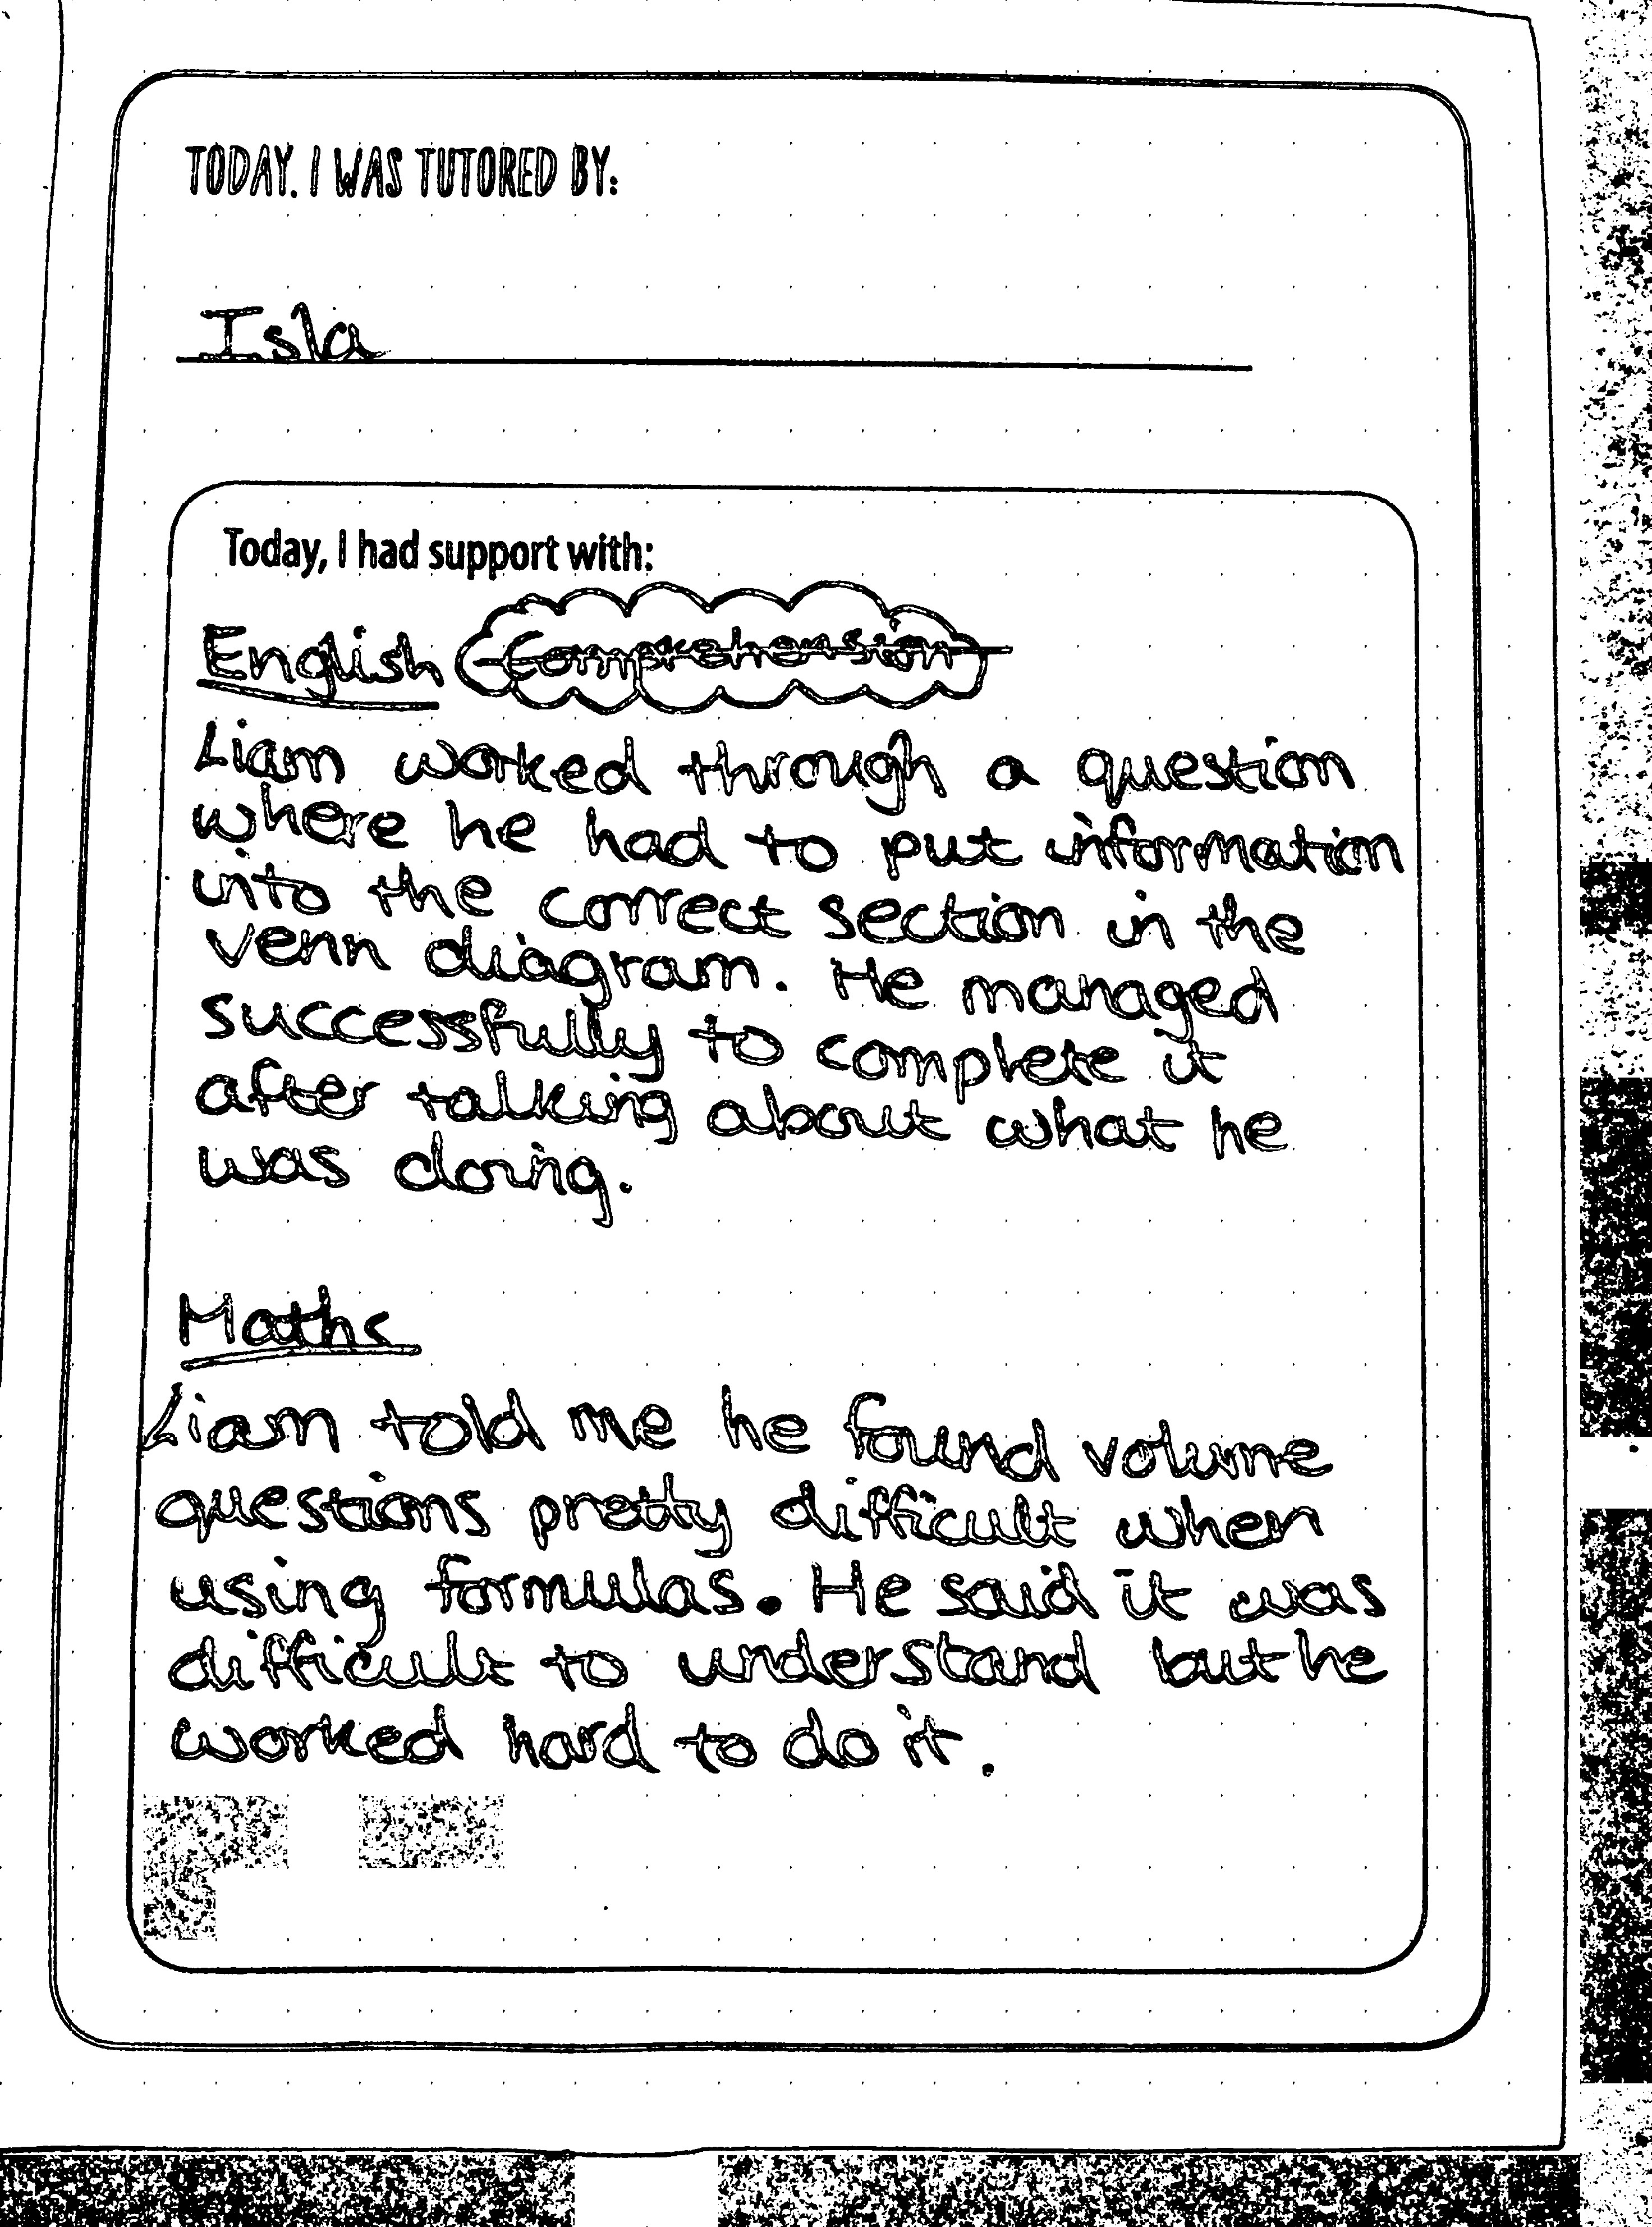 TODAY, I WAS TUTORED BY:
Isla
Today, I had support with:
English Comprehension
Liam worked through a question
where he had to put information
into the correct section in the
venn diagram. He managed
successfully to complete it
after talking about what he
was doing.
Maths
Liam told me he found volume
questions pretty difficult when
using formulas. He said it was
difficult to understand but he
worked hard to do it.